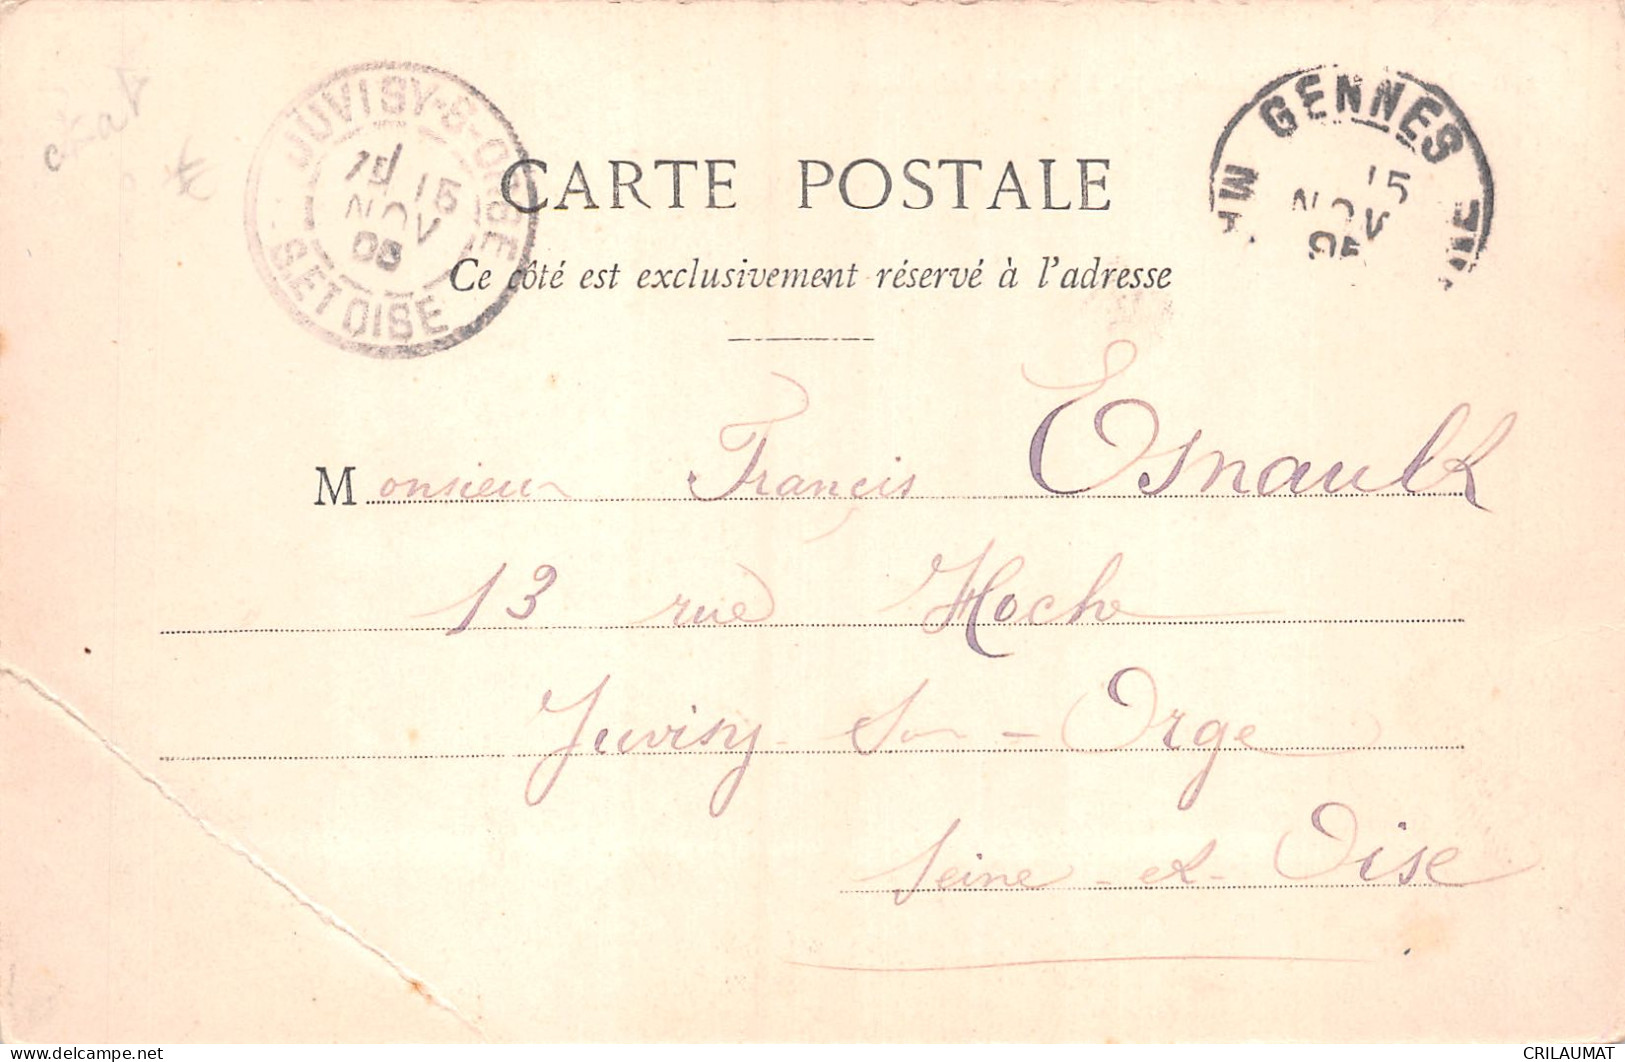 JUVISY-S-ORGE
15
NOV
S. ET OISE
GENNES
15
NOV
05
CARTE POSTALE
Ce côté est exclusivement réservé à l'adresse
Monsieur Françis Esnault
13 rue Hoche
Juvisy-Sur-Orge
Seine-et-Oise
CRILAUMAT